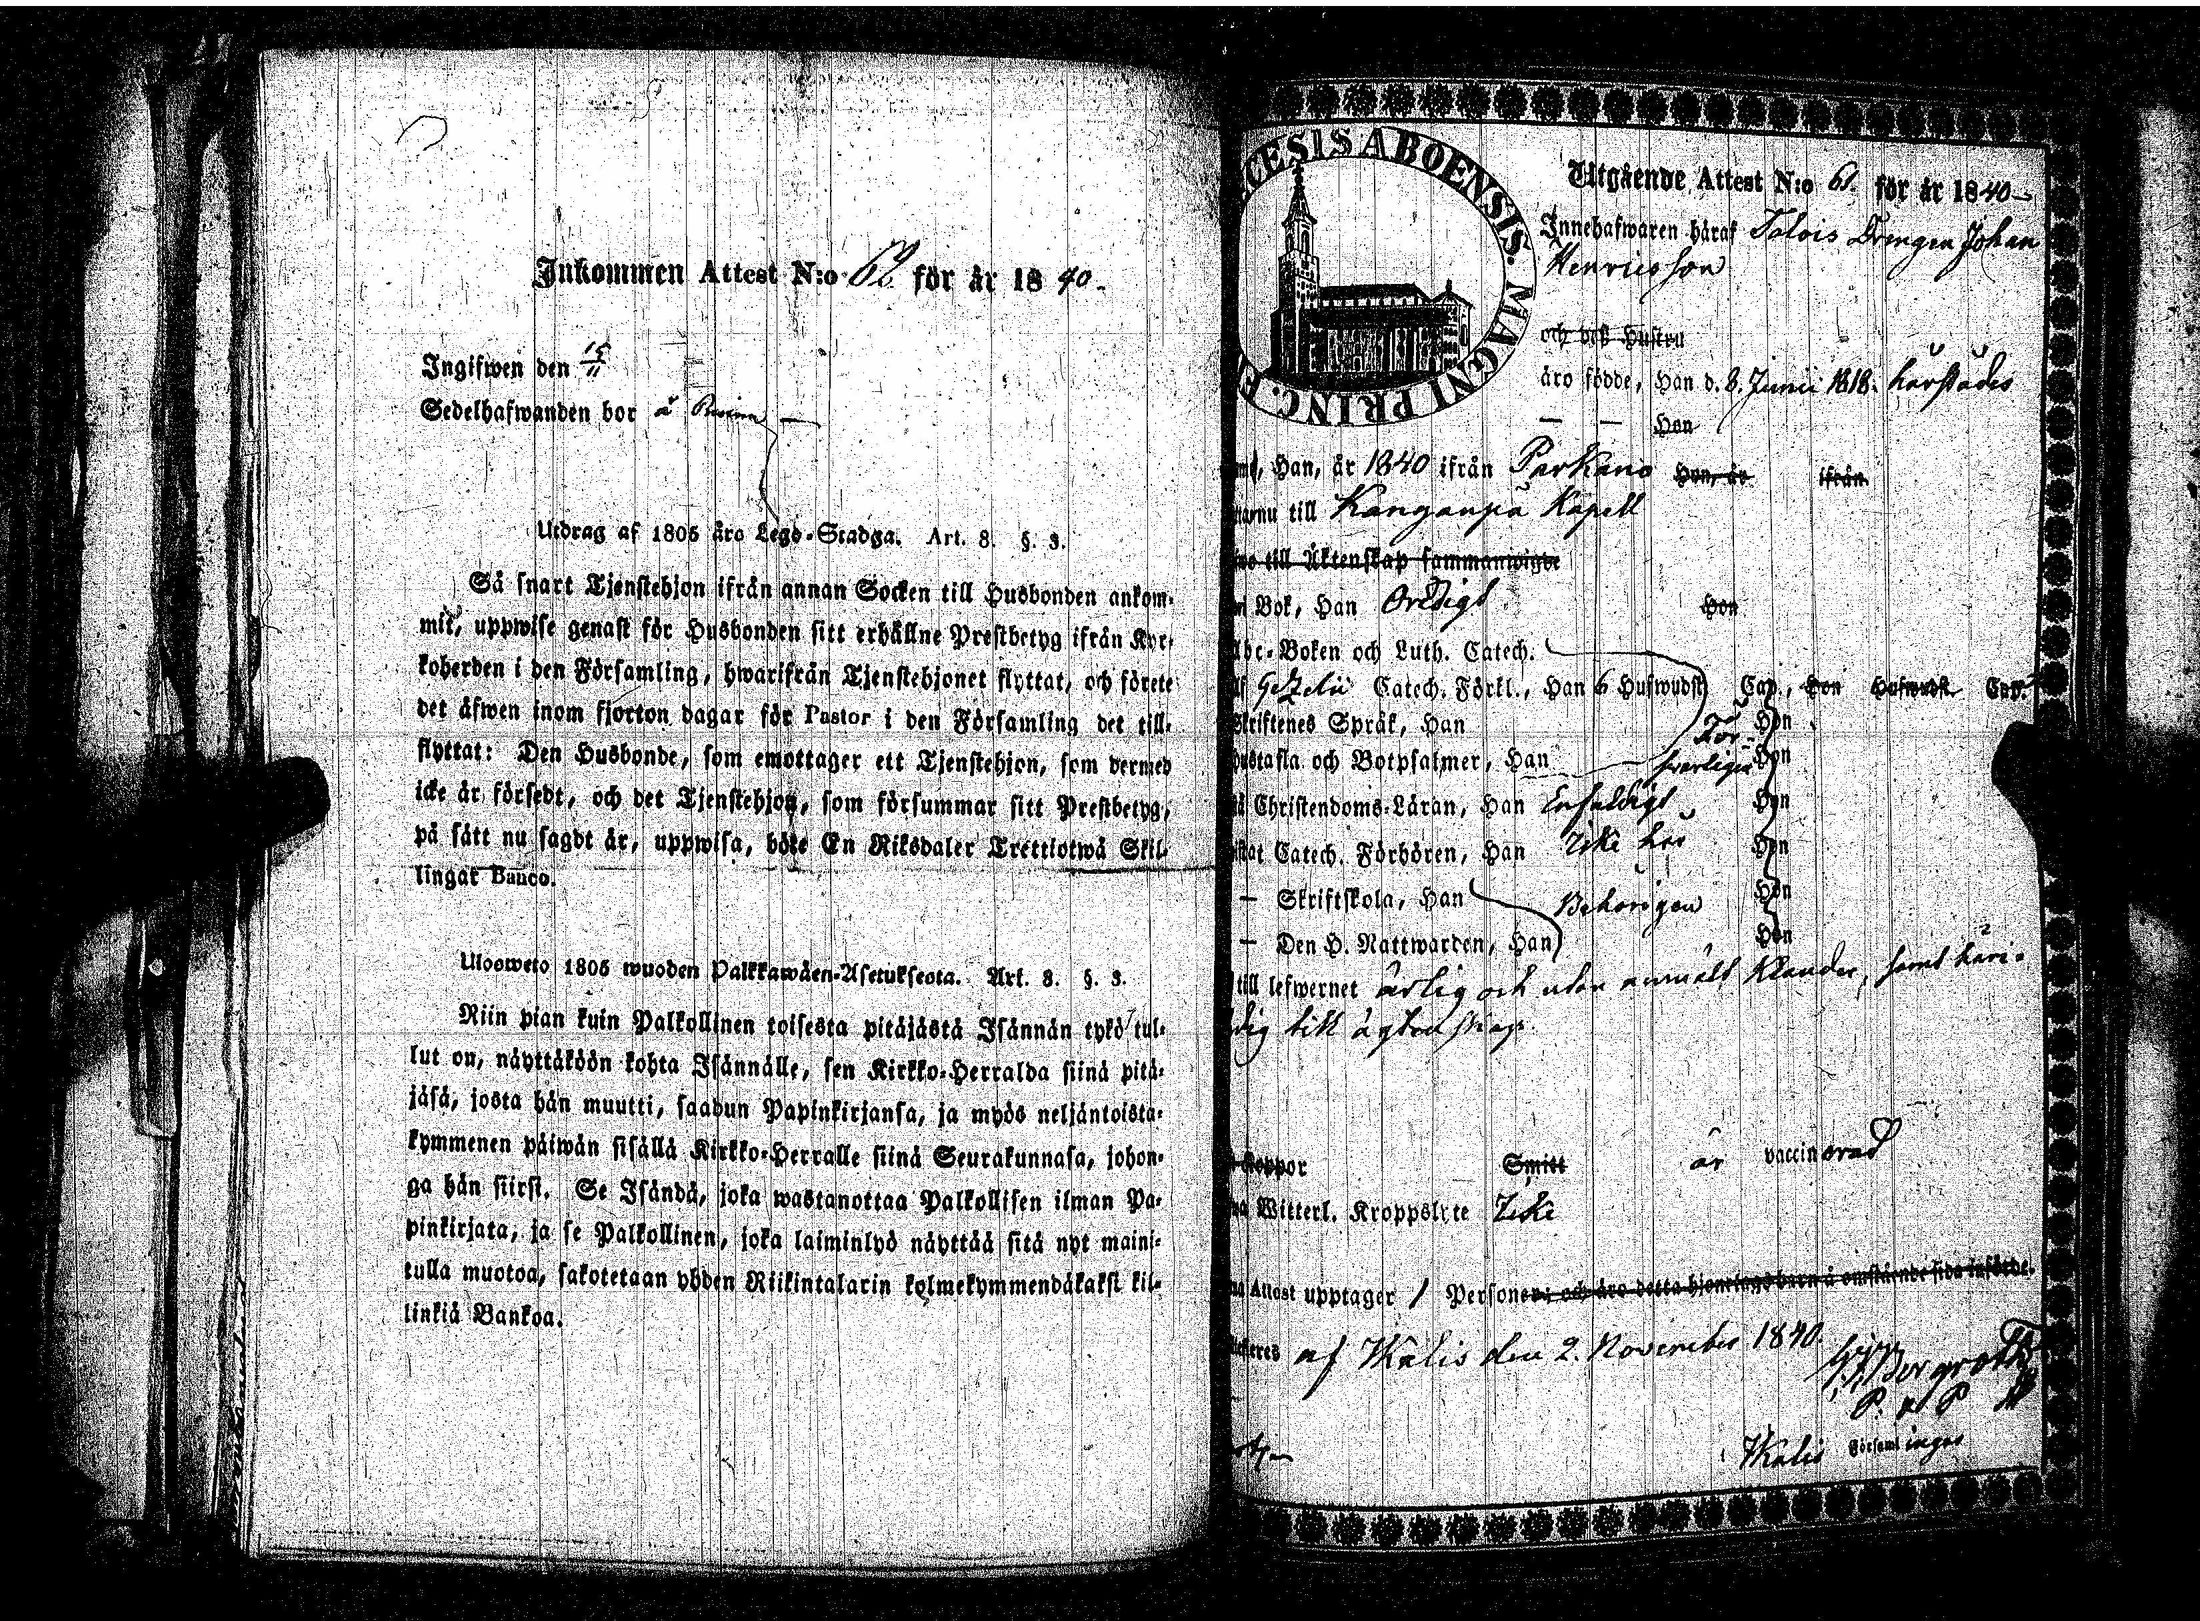 Inkommen Attest N:o 62 för år 1840.
Ingifwen den 15/11
Sedelhafwanden bor å
Utdrag af 1805 års Lego-Stadga. Art. 8. §. 3.
Så snart Tjenstehjon ifrån annan Socken till Husbonden ankom-
mit, uppwise genast för Husbonden sitt erhållne Prestbetyg ifrån Kyr-
koherden i den Församling, hwarifrån Tjenstehjonet flyttat, och förete
det åfwen inom fjorton dagar för Pastor i den Församling det till-
flyttat: Den Husbonde, som emottager ett Tjenstehjon, som dermed
icke år försedt, och det Tjenstehjon, som försummar sitt Prestbetyg,
på sått nu sagdt år, uppwisa, böte En Riksdaler Trettiotwå Skil-
lingar Banco.
Ulosweto 1805 wuoden Palkkawåen-Asetuksesta. Art. 8. §. 3.
Niin pian kuin Palkollinen toisesta pitåjåstå Isånnån tykö tul-
lut on, nåyttåköön kohta Isånnålle, sen Kirkko-Herralda siinå pitå-
jåså, josta hån muutti, saadun Papinkirjansa, ja myös neljåntoista-
kymmenen påiwån sisållå Kirkko-Herralle siinå Seurakunnasa, johon-
ga hån siirsi. Se Isåndå, joka wastanottaa Palkollisen ilman Pa-
pinkirjata, ja se Palkollinen, joka laiminlyö nåyttåå sitå nyt maini-
tulla muotoa, sakotetaan yhden Riikintalarin kolmekymmendåkaksi kil-
linkiå Bankoa.
CESIS ABOENSIS. MAGNI PRINC. F
Utgående Attest N:o 61. för år 1840
Innehafwaren håraf Talois Drengen Johan
Henricsson
och deß Hustru
åro födde, Han d. 8. Junii 1818. hårstådes
— — Hon
Han, år 1840 ifrån Parkano Hon, år ifrån
till Kangaspå Kapell
till Åktenskap sammanwigde
Bok, Han Ordigt Hon
Abc-Boken och Luth. Catech.
Gezelii Catech. Förkl., Han 6 Hufwudst. Cap., Hon Hufwudst. Cap.
Skriftenes Språk, Han Hon
Hustafla och Botpsalmer, Han Hon
Christendoms-Låran, Han Enfaldigt Hon
Catech. Förhören, Han Icke hår Hon
— Skriftskola, Han Behörigen Hon
— Den H. Nattwarden, Han Hon
till lefwernet årlig och utan anmåldt klander, samt håri-
dig till ågtenskap.
koppor Smitt år vaccinerad
Witterl. Kroppslyte Icke
Attest upptager 1 Personer; och åro detta hjonelags barn å omstående sida införde.
af Ikalis den 2. November 1840.
Bergroth
Ikalis Församlingas